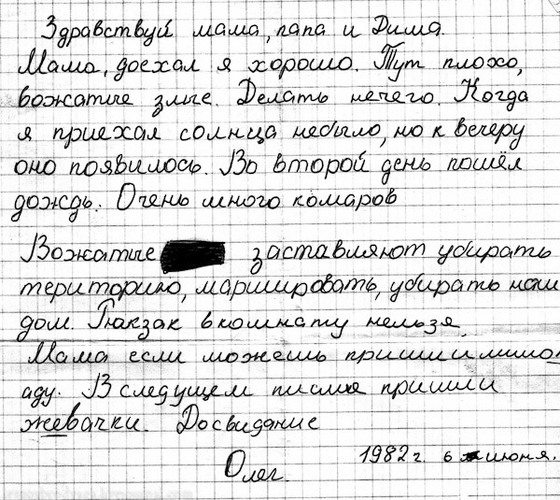 Здравствуй мама, папа и Дима.
Мама, доехал я хорошо. Тут плохо,
вожатые злые. Делать нечего. Когда
я приехал солнца небыло, но к вечеру
оно появилось. Во второй день пошёл
дождь. Очень много комаров
Вожатые заставляют убирать
територию, маршировать, убирать наш
дом. Рюкзак вкомнату нельзя.
Мама если можешь пришли лимо-
аду. В следущем письме пришли
жевачки. Досвидание
1982 г. 6 июня.
Олег.